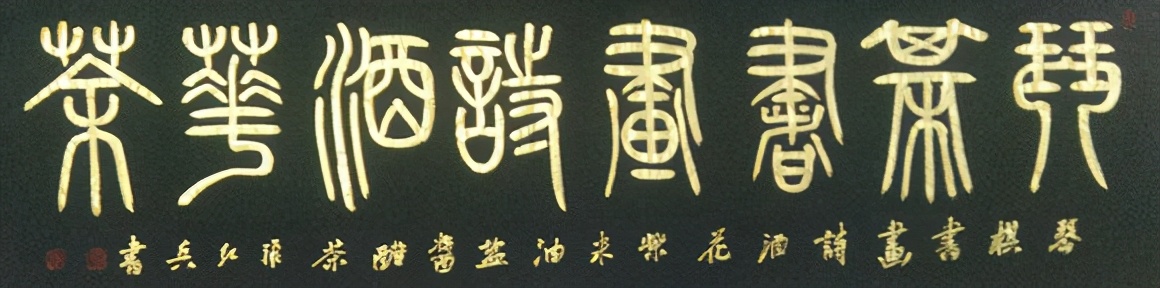 琴棋書畫詩酒華茶
琴棋書畫詩酒花柴米油盐醬醋茶張红兵書